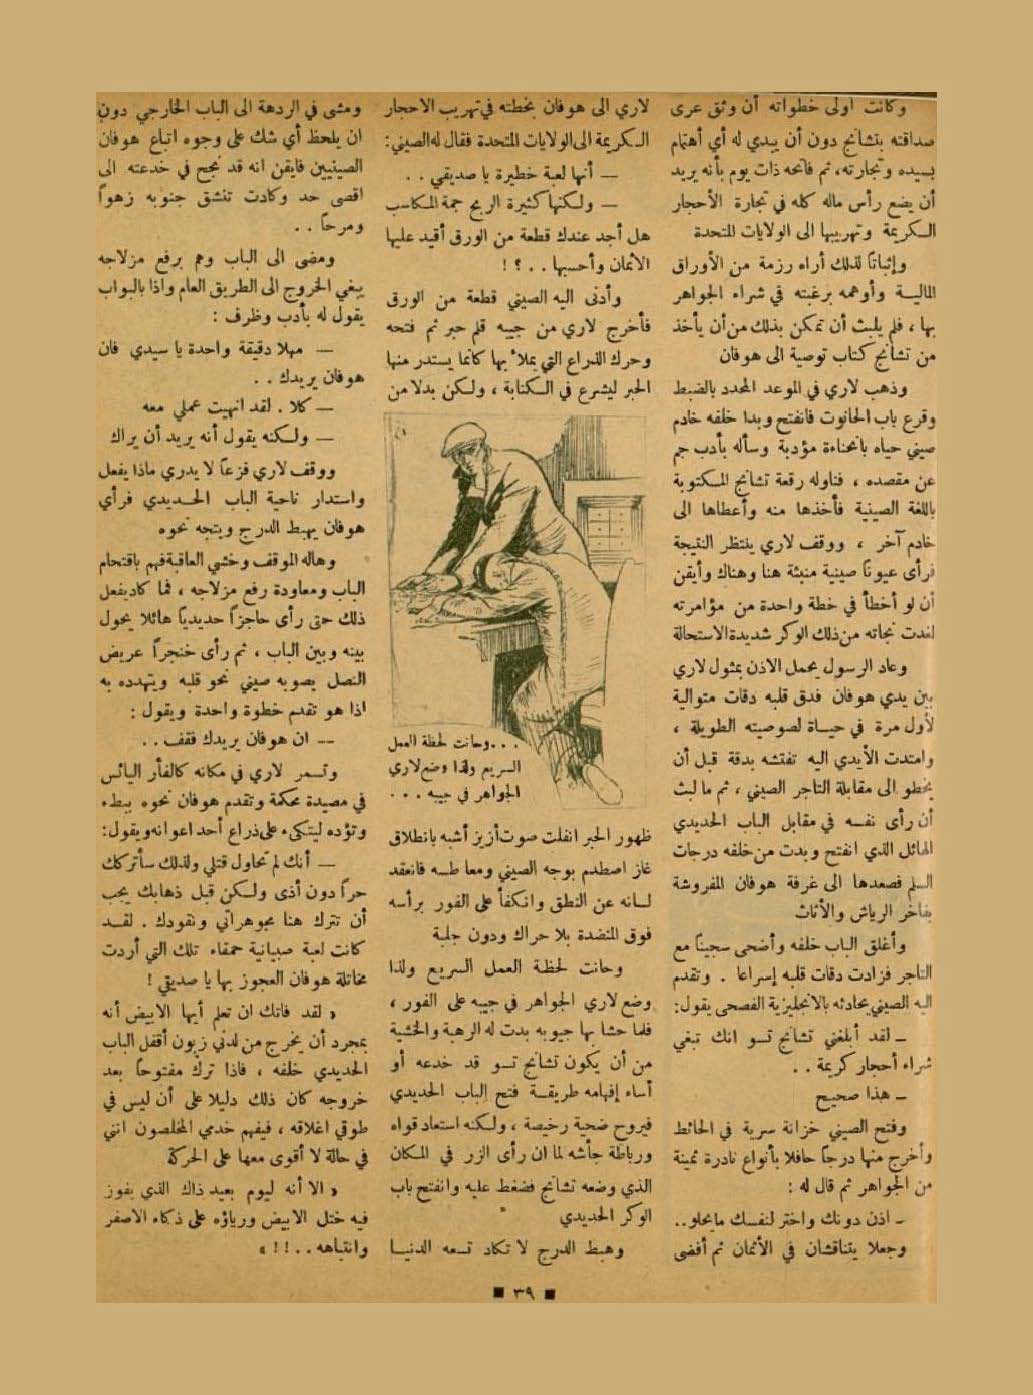 وكانت اولى خطواته أن وثق عرى
صداقته بتشانج دون أن يبدي له أي أهتمام
بسيده وتجارته، ثم فاتحه ذات يوم بأنه يريد
أن يضع رأس ماله كله في تجارة الأحجار
الكريمة وتهريبها الى الولايات المتحدة
وإثباتاً لذلك أراه رزمة من الأوراق
المالية وأوهمه برغبته في شراء الجواهر
بها، فلم يلبث أن تمكن بذلك من أن يأخذ
من تشانج كتاب توصية الى هوفان
وذهب لاري في الموعد المحدد بالضبط
وقرع باب الحانوت فانفتح وبدا خلفه خادم
صيني حياه بانحناءة مؤدبة وسأله بأدب جم
عن مقصده ، فناوله رقعة تشانج المكتوبة
باللغة الصينية فأخذها منه وأعطاها الى
خادم آخر ، ووقف لاري ينتظر النتيجة
فرأى عيوناً صينية منبثة هنا وهناك وأيقن
أن لو أخطأ في خطة واحدة من مؤامرته
لغدت نجاته من ذلك الوكر شديدة الاستحالة
وعاد الرسول يحمل الاذن بمثول لاري
بين يدي هوفان فدق قلبه دقات متوالية
لأول مرة في حياة لصوصيته الطويلة ،
وامتدت الأيدي اليه تفتشه بدقة قبل أن
يخطو الى مقابلة التاجر الصيني ، ثم ما لبث
أن رأى نفسه في مقابل الباب الحديدي
الهائل الذي انفتح وبدت من خلفه درجات
السلم فصعدها الى غرفة هوفان المفروشة
بفاخر الرياش والأثاث
وأغلق الباب خلفه وأضحى سجيناً مع
التاجر فزادت دقات قلبه إسراعا . وتقدم
اليه الصيني يحادثه بالانجليزية الفصحى يقول:
ـ لقد أبلغني تشانج تسو انك تبغي
شراء أحجار كريمة . .
ـ هذا صحيح
وفتح الصيني خزانة سرية في الحائط
وأخرج منها درجاً حافلا بأنواع نادرة ثمينة
من الجواهر ثم قال له :
ـ اذن دونك واختر لنفسك ما يحلو..
وجعلا يتناقشان في الأثمان ثم أفضى
لاري الى هوفان بخطته في تهريب الاحجار
الكريمة الى الولايات المتحدة فقال له الصيني:
— أنها لعبة خطيرة يا صديقي . .
— ولكنها كثيرة الربح جمة المكاسب
هل أجد عندك قطعة من الورق أقيد عليها
الاثمان وأحسبها . . ؟ !
وأدنى اليه الصيني قطعة من الورق
فأخرج لاري من جيبه قلم حبر ثم فتحه
وحرك الذراع التي يملأ بها كأنما يستدر منها
الحبر ليشرع في الكتابة ، ولكن بدلا من
. . . وحانت لحظة العمل
السريع ولذا وضع لاري
الجواهر في جيبه . . .
ظهور الحبر انفلت صوت أزيز أشبه بانطلاق
غاز اصطدم بوجه الصيني ومعاطسه فانعقد
لسانه عن النطق وانكفأ على الفور برأسه
فوق المنضدة بلا حراك ودون جلبة
وحانت لحظة العمل السريع ولذا
وضع لاري الجواهر في جيبه على الفور ،
فلما حشا بها جيوبه بدت له الرهبة والخشية
من أن يكون تشانج تسو قد خدعه أو
أساء إفهامه طريقة فتح الباب الحديدي
فيروح ضحية رخيصة ، ولكنه استعاد قواه
ورباطة جأشه لما ان رأى الزر في المكان
الذي وضعه تشانج فضغط عليه وانفتح باب
الوكر الحديدي
وهبط الدرج لا تكاد تسعه الدنيا
ومشى في الردهة الى الباب الخارجي دون
ان يلحظ أي شك على وجوه اتباع هوفان
الصينيين فايقن انه قد نجح في خدعته الى
اقصى حد وكادت تنشق جنوبه زهواً
ومرحاً . .
ومضى الى الباب وهم برفع مزلاجه
يبغي الخروج الى الطريق العام واذا بالبواب
يقول له بأدب وظرف :
— مهلا دقيقة واحدة يا سيدي فان
هوفان يريدك . .
— كلا . لقد انهيت عملي معه
— ولكنه يقول أنه يريد أن يراك
ووقف لاري فزعاً لا يدري ماذا يفعل
واستدار ناحية الباب الحديدي فرأي
هوفان يهبط الدرج ويتجه نحوه
وهاله الموقف وخشي العاقبة فهم باقتحام
الباب ومعاودة رفع مزلاجه ، فما كاد يفعل
ذلك حتى رأى حاجزاً حديدياً هائلا يحول
بينه وبين الباب ، ثم رأى خنجراً عريض
النصل يصوبه صيني نحو قلبه ويتهدده به
اذا هو تقدم خطوة واحدة ويقول :
— ان هوفان يريدك فقف . .
وتسمر لاري في مكانه كالفأر اليائس
في مصيدة محكمة وتقدم هوفان نحوه ببطء
وتؤده ليتكىء على ذراع أحد اعوانه ويقول:
— أنك لم تحاول قتلي ولذلك سأتركك
حراً دون أذى ولكن قبل ذهابك يجب
أن تترك هنا مجوهراتي ونقودك . لقد
كانت لعبة صبيانية حمقاء تلك التي أردت
مخاتلة هوفان العجوز بها يا صديقي !
« لقد فاتك ان تعلم أيها الابيض أنه
بمجرد أن يخرج من لدني زبون أقفل الباب
الحديدي خلفه ، فاذا ترك مفتوحاً بعد
خروجه كان ذلك دليلا على أن ليس في
طوقي اغلاقه ، فيفهم خدمي المخلصون انني
في حالة لا أقوى معها على الحركة
« الا أنه ليوم بعيد ذاك الذي يفوز
فيه ختل الابيض ورياؤه على ذكاء الاصفر
وانتباهه . . ! ! »
■ ٣٩ ■